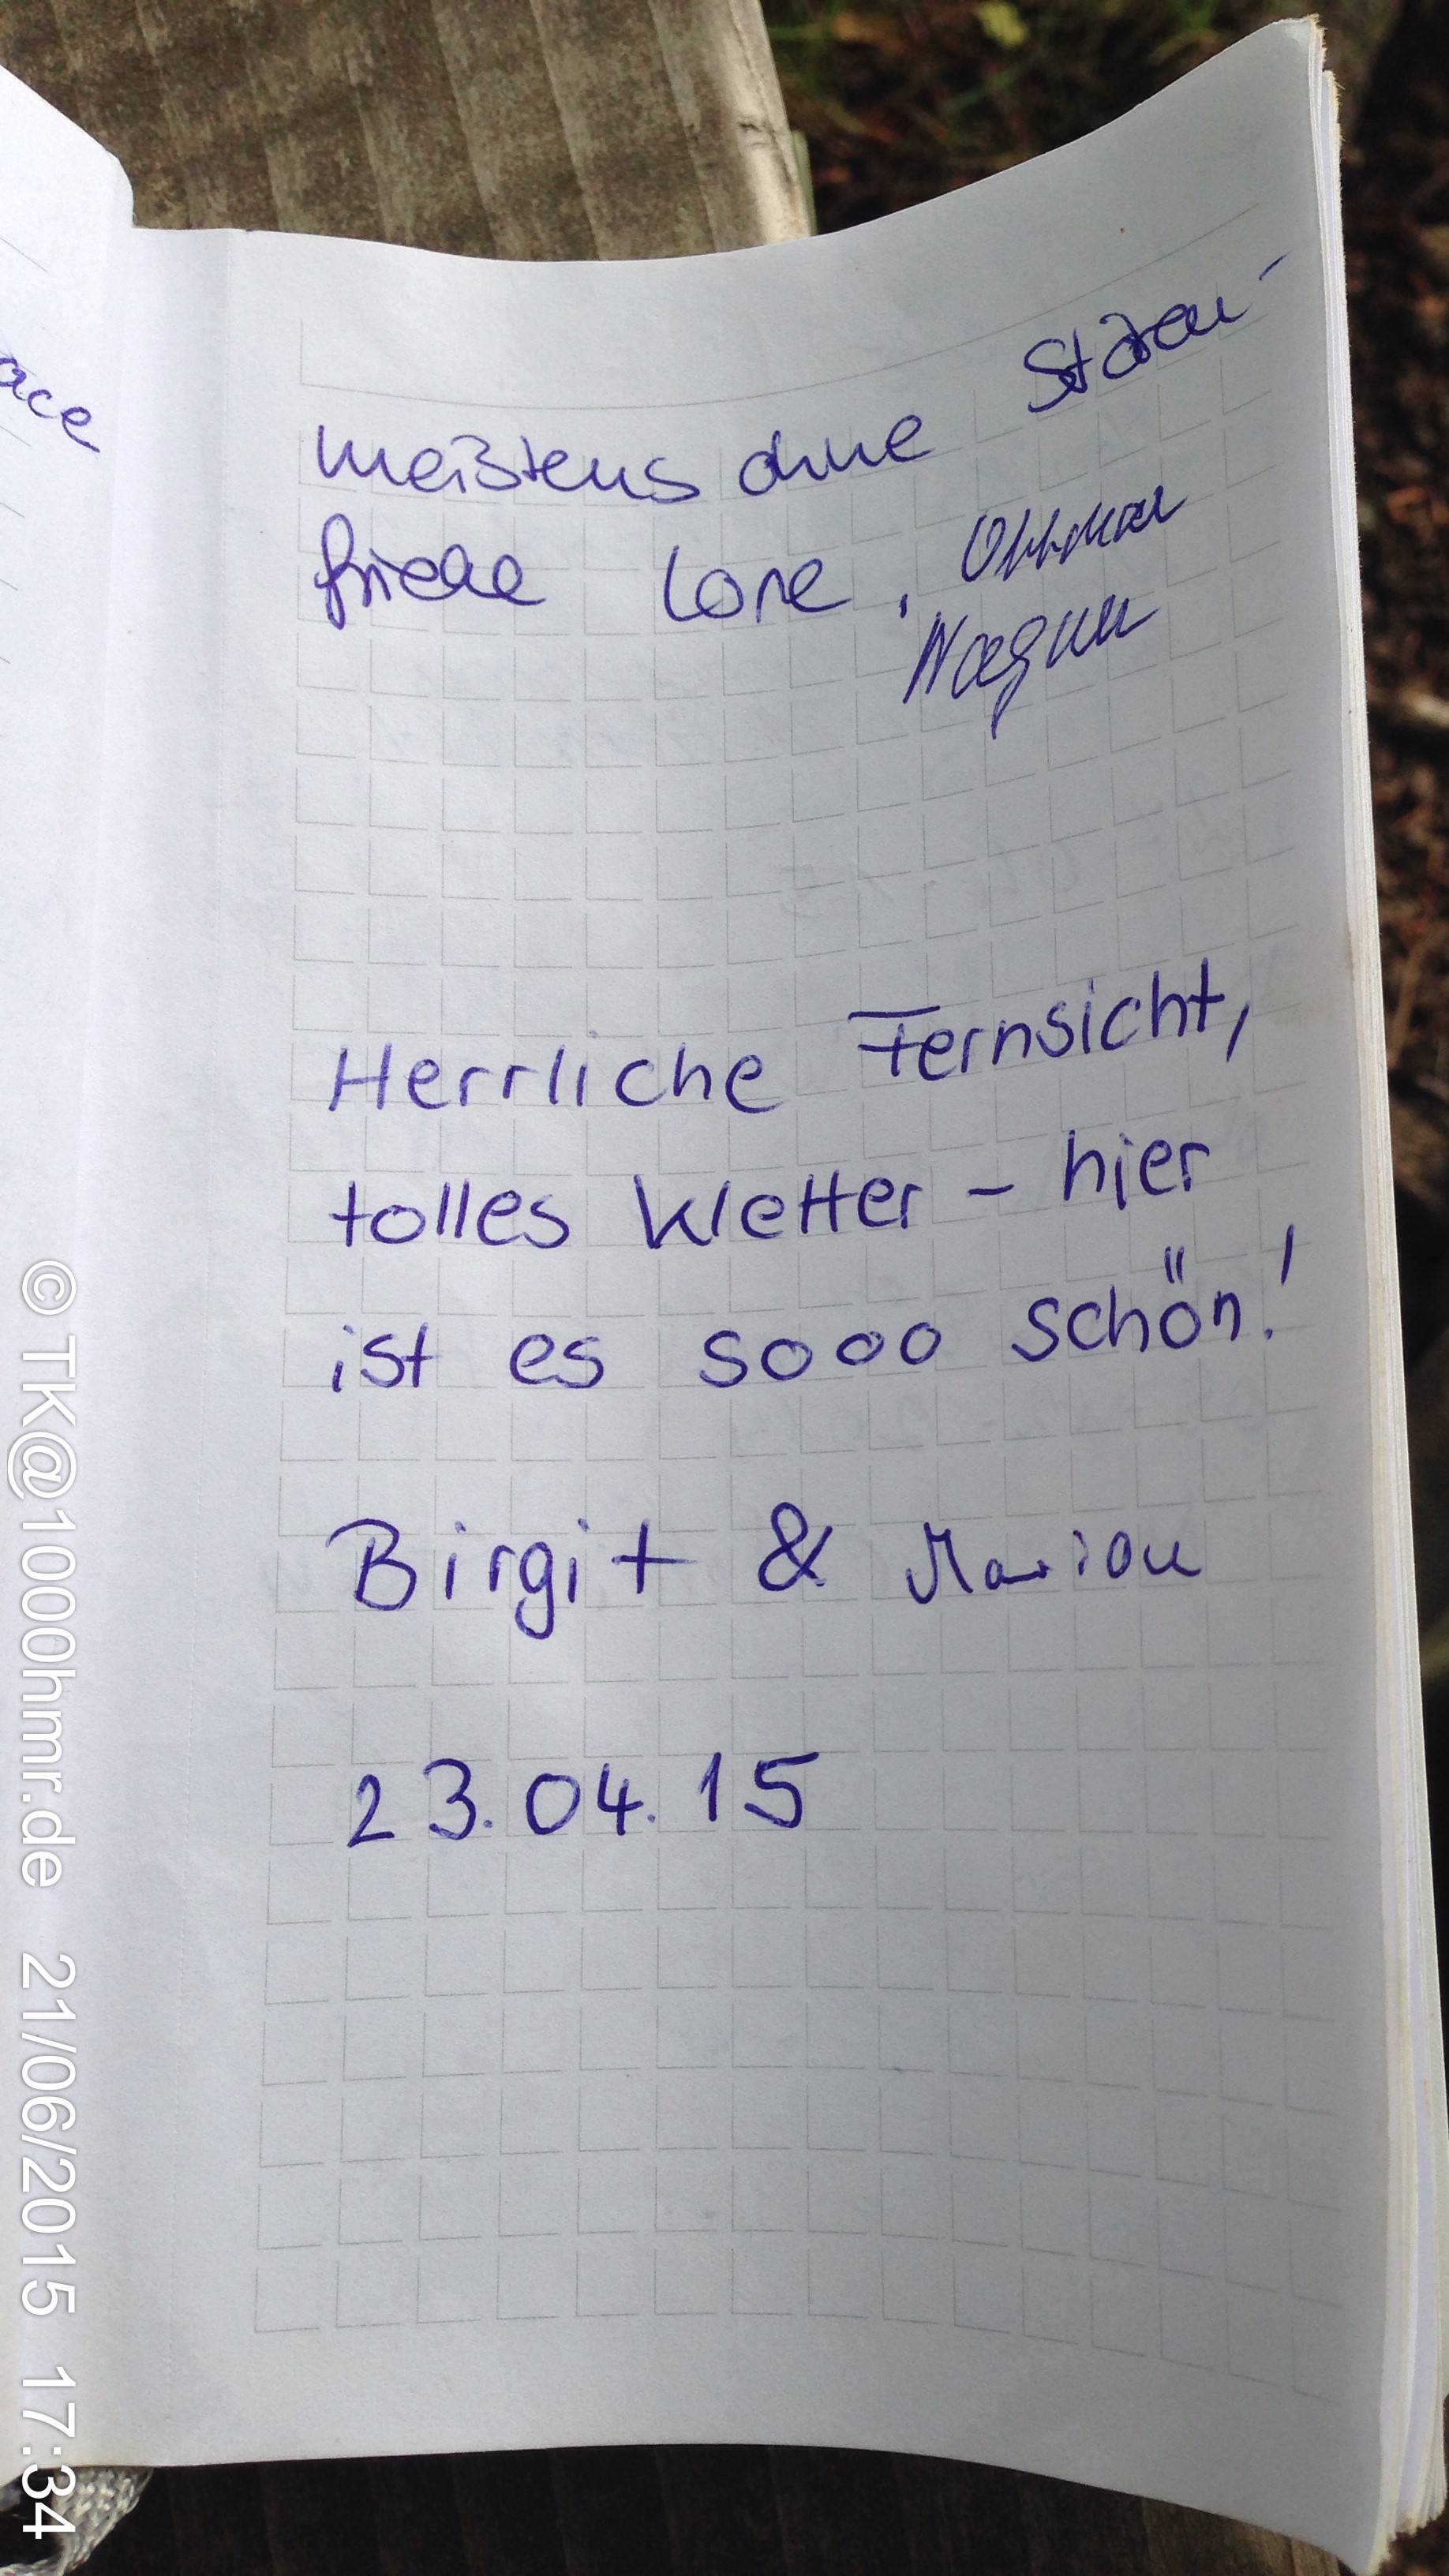 meistens ohne
Lone,
Herrliche Fernsicht,
tolles Wetter - hier
ist es sooo schön!
Birgit & Marion
23.04.15
© TK@1000hmr.de 21/06/2015 17:34